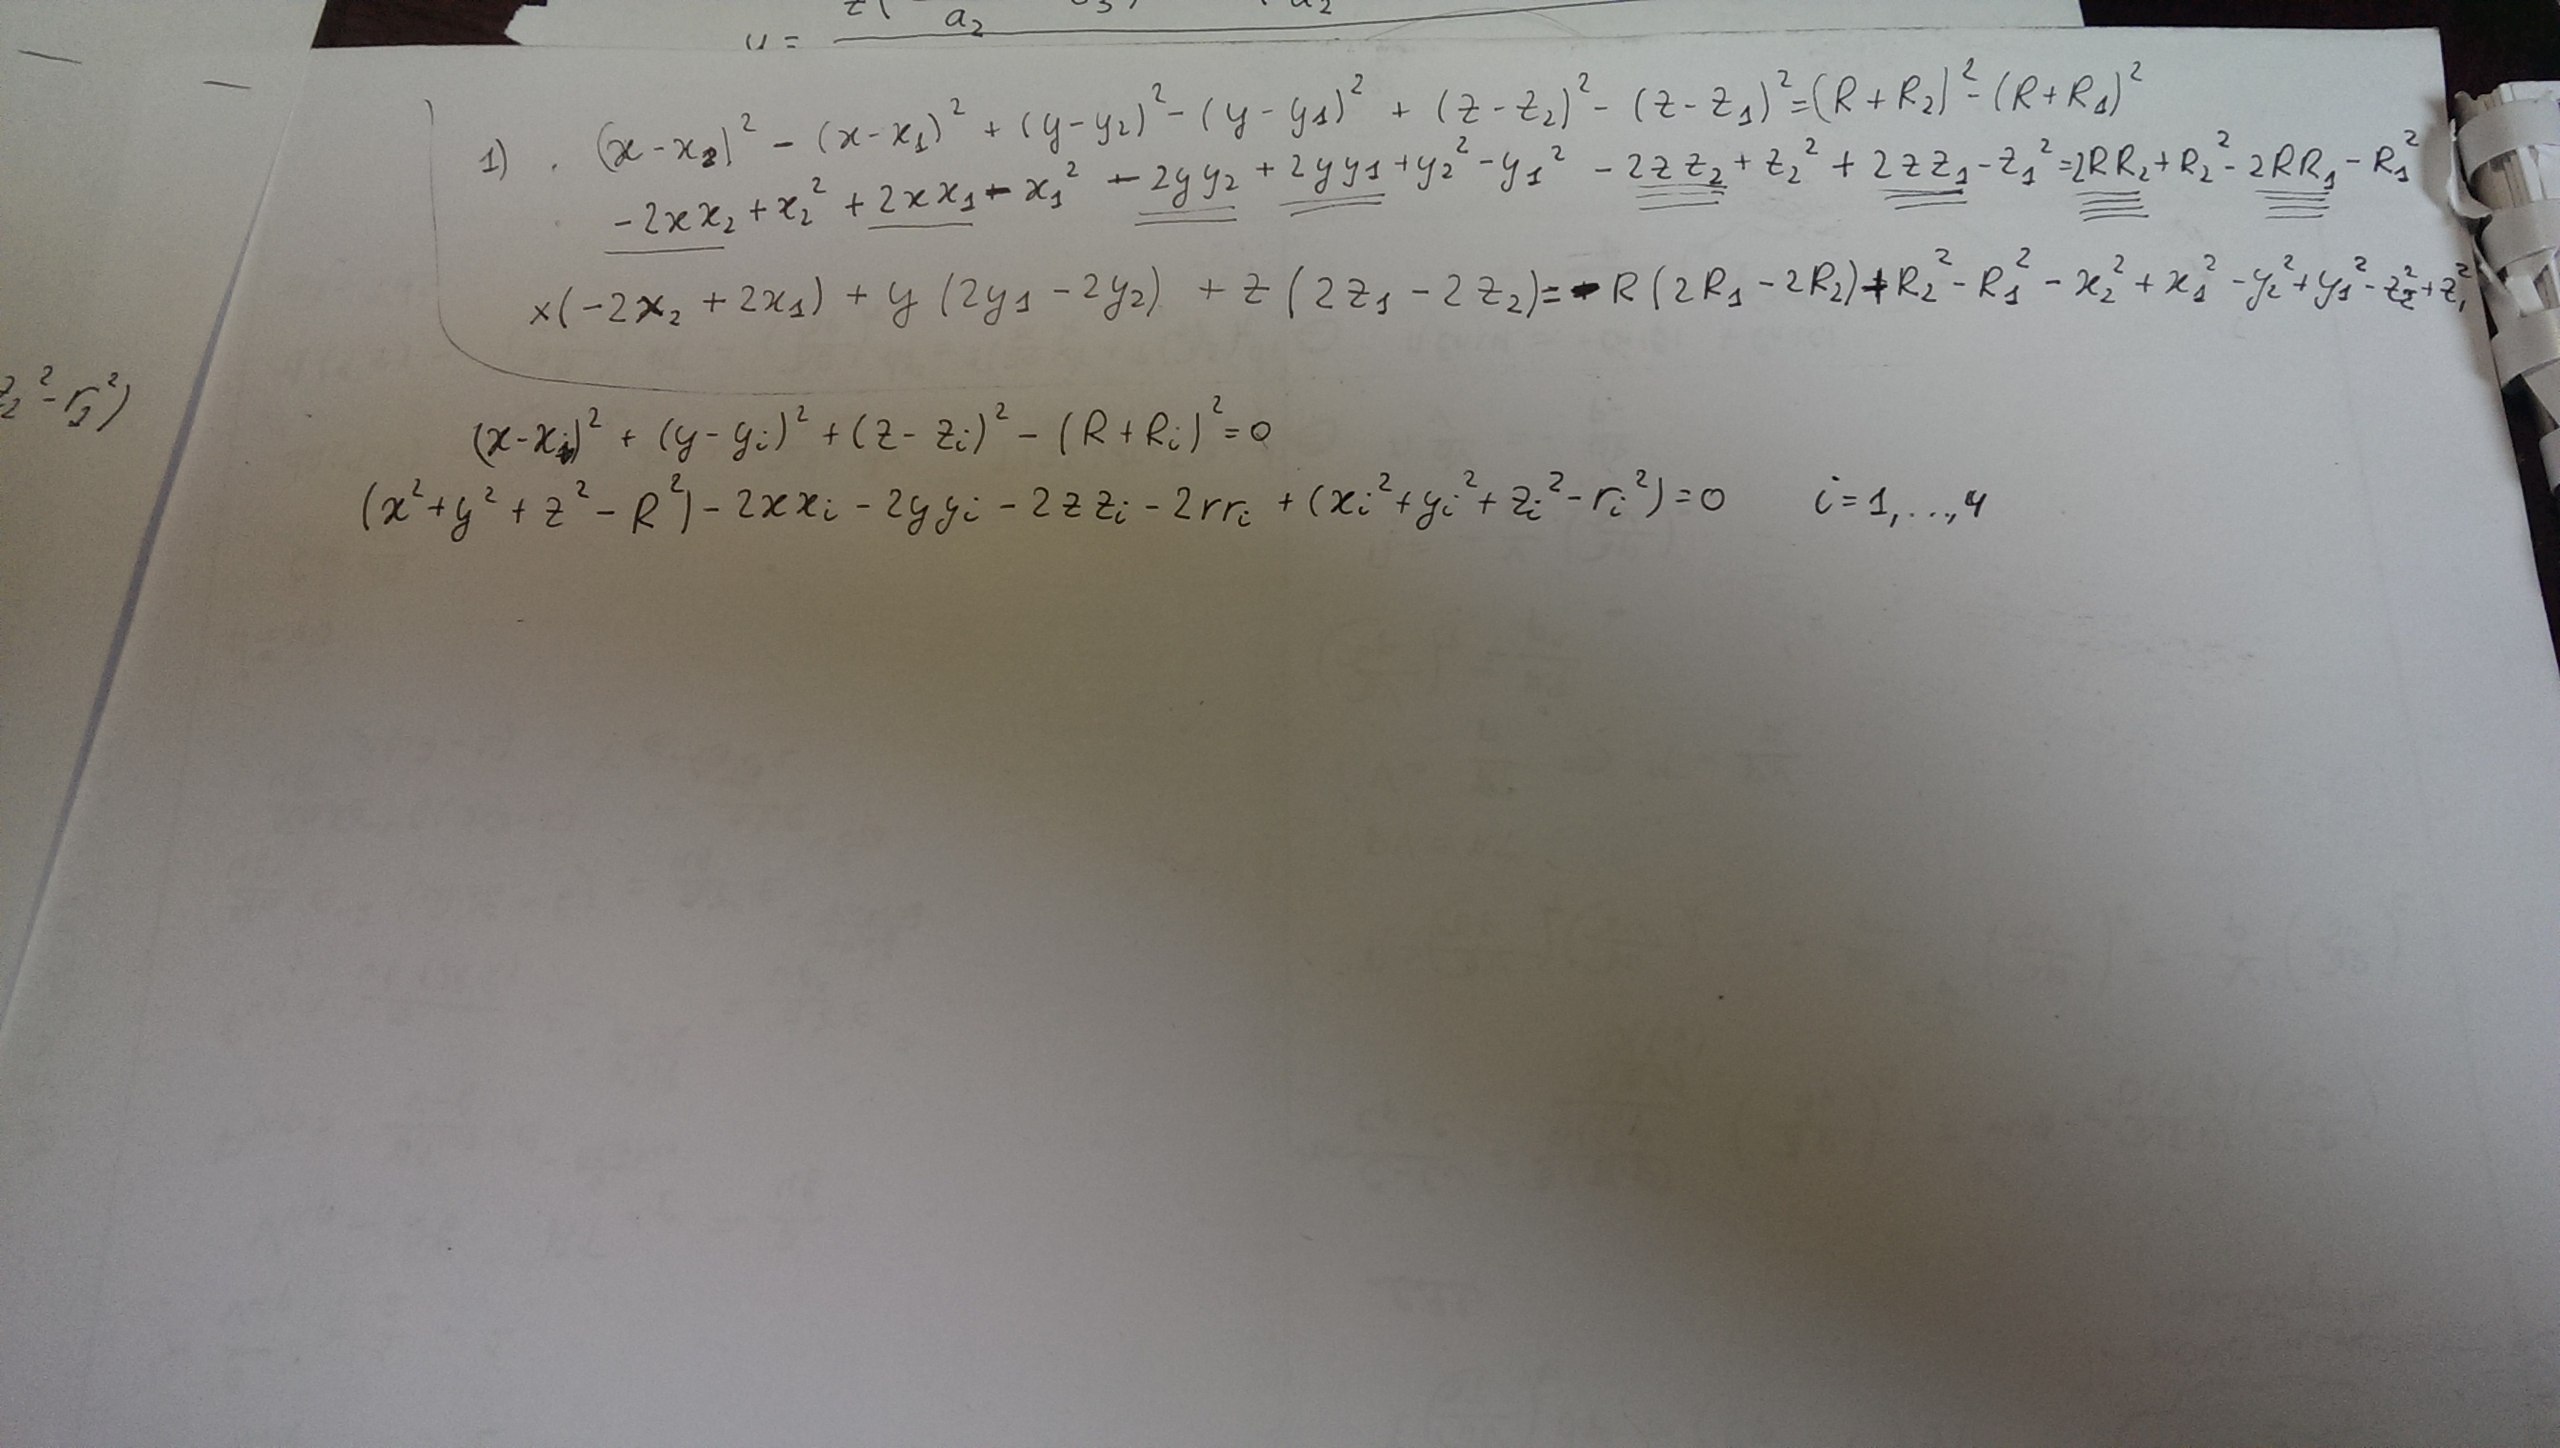 a₂
u =
1) (x-x₂)² - (x-x₁)² + (y-y₂)² - (y-y₁)² + (z-z₂)² - (z-z₁)² = (R+R₂)² - (R+R₁)²
-2xx₂ + x₂² + 2xx₁ - x₁² - 2yy₂ + 2yy₁ + y₂² - y₁² - 2zz₂ + z₂² + 2zz₁ - z₁² = 2RR₂ + R₂² - 2RR₁ - R₁²
x(-2x₂ + 2x₁) + y(2y₁ - 2y₂) + z(2z₁ - 2z₂) = - R(2R₁ - 2R₂) + R₂² - R₁² - x₂² + x₁² - y₂² + y₁² - z₂² + z₁²
(x-xᵢ)² + (y-yᵢ)² + (z-zᵢ)² - (R+Rᵢ)² = 0
(x² + y² + z² - R²) - 2xxᵢ - 2yyᵢ - 2zzᵢ - 2rrᵢ + (xᵢ² + yᵢ² + zᵢ² - rᵢ²) = 0 i = 1, ..., 4